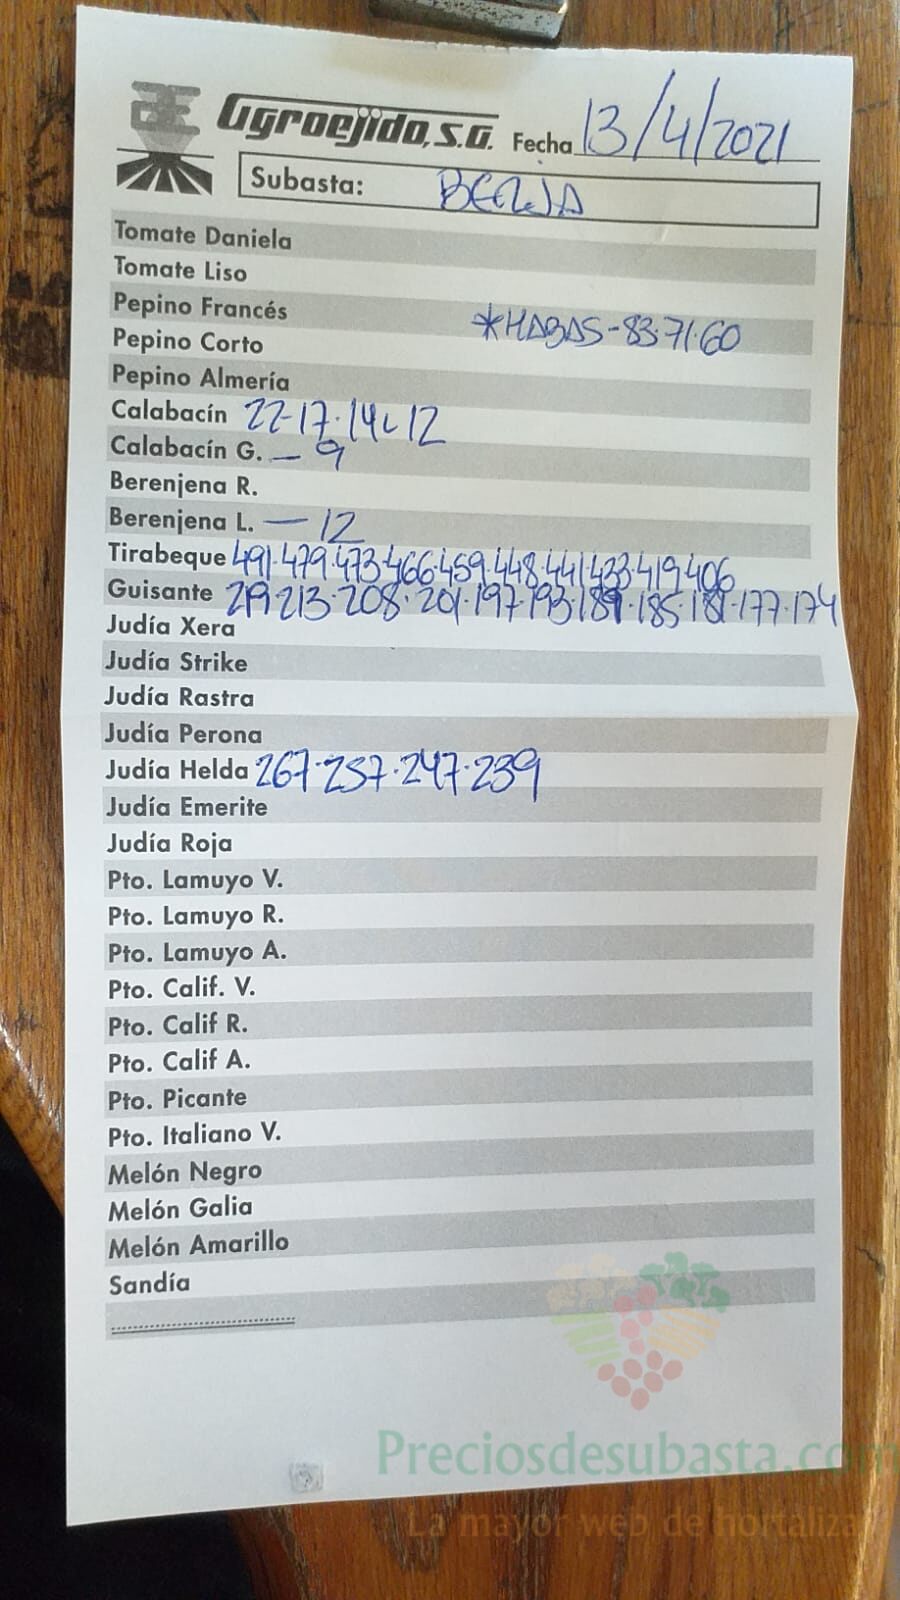 Agroejido, S.A. Fecha 13/4/2021
Subasta: BERJA
Tomate Daniela
Tomate Liso
Pepino Francés
*HABAS-83·71·60
Pepino Corto
Pepino Almería
Calabacín 22-17·14·12
Calabacín G. — 9
Berenjena R.
Berenjena L. — 12
Tirabeque 491·479·473·466·459·448·441·433·419·406
Guisante 219·213·208·201·197·193·189·185·181·177·174
Judía Xera
Judía Strike
Judía Rastra
Judía Perona
Judía Helda 267·257·247·239
Judía Emerite
Judía Roja
Pto. Lamuyo V.
Pto. Lamuyo R.
Pto. Lamuyo A.
Pto. Calif. V.
Pto. Calif R.
Pto. Calif A.
Pto. Picante
Pto. Italiano V.
Melón Negro
Melón Galia
Melón Amarillo
Sandía
Preciosdesubasta.com
La mayor web de hortaliza